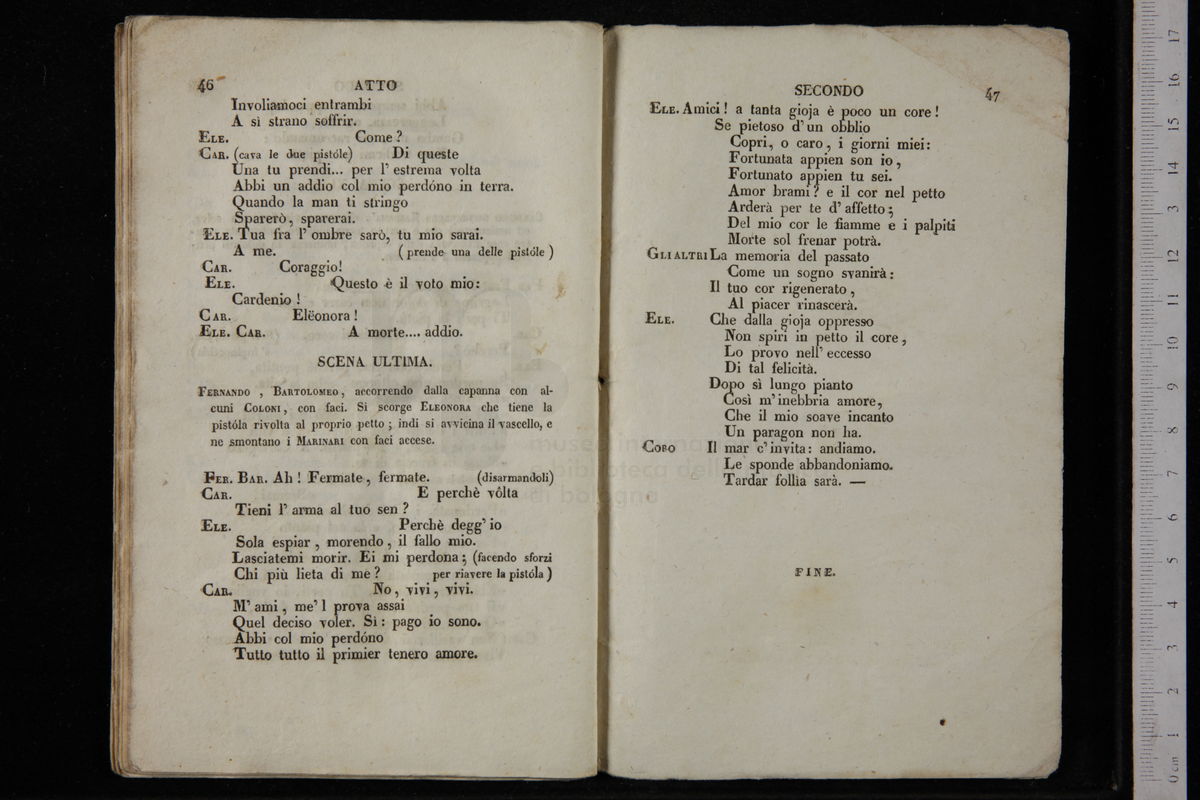 46 ATTO
Involiamoci entrambi
A sì strano soffrir.
ELE. Come ?
CAR. (cava le due pistóle) Di queste
Una tu prendi... per l' estrema volta
Abbi un addio col mio perdóno in terra.
Quando la man ti stringo
Sparerò, sparerai.
ELE. Tua fra l' ombre sarò, tu mio sarai.
A me. ( prende una delle pistóle )
CAR. Coraggio!
ELE. Questo è il voto mio:
Cardenio !
CAR. Elëonora !
ELE. CAR. A morte.... addio.
SCENA ULTIMA.
FERNANDO , BARTOLOMEO , accorrendo dalla capanna con al-
cuni COLONI , con faci. Si scorge ELEONORA che tiene la
pistóla rivolta al proprio petto ; indi si avvicina il vascello, e
ne smontano i MARINARI con faci accese.
FER. BAR. Ah ! Fermate , fermate. (disarmandoli)
CAR. E perchè vôlta
Tieni l' arma al tuo sen ?
ELE. Perchè degg' io
Sola espiar , morendo , il fallo mio.
Lasciatemi morir. Ei mi perdona ; (facendo sforzi
Chi più lieta di me ? per riavere la pistóla )
CAR. No , vivi , vivi.
M' ami , me' l prova assai
Quel deciso voler. Sì : pago io sono.
Abbi col mio perdóno
Tutto tutto il primier tenero amore.
SECONDO 47
ELE. Amici ! a tanta gioja è poco un core !
Se pietoso d' un obblio
Copri, o caro , i giorni miei :
Fortunata appien son io ,
Fortunato appien tu sei.
Amor brami ? e il cor nel petto
Arderà per te d' affetto ;
Del mio cor le fiamme e i palpiti
Morte sol frenar potrà.
GLI ALTRI La memoria del passato
Come un sogno svanirà :
Il tuo cor rigenerato ,
Al piacer rinascerà.
ELE. Che dalla gioja oppresso
Non spiri in petto il core ,
Lo provo nell' eccesso
Di tal felicità.
Dopo sì lungo pianto
Così m' inebbria amore,
Che il mio soave incanto
Un paragon non ha.
CORO Il mar c' invita : andiamo.
Le sponde abbandoniamo.
Tardar follia sarà. —
FINE.